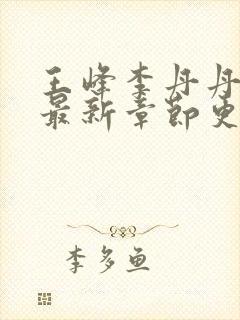 王峰李丹丹
最新章节更
李多鱼